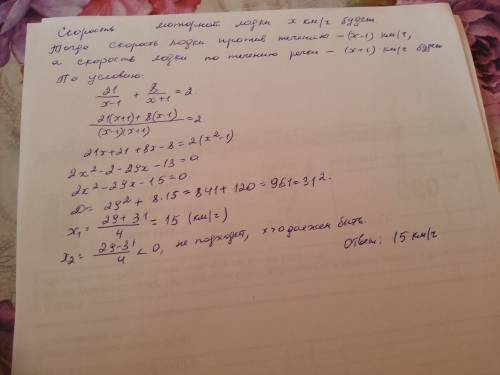 Скорость моторной лодки x км/г будет
Тогда скорость лодки против течению – (x-1) км/г,
а скорость лодки по течению реки – (x+1) км/г будет
По условию:
21/(x-1) + 8/(x+1) = 2.
(21(x+1) + 8(x-1))/((x-1)(x+1)) = 2.
21x+21+8x-8=2(x²-1)
2x²-2-29x-13=0
2x²-29x-15=0
D=29²+8·15=841+120=961=31².
x₁ = (29+31)/4 = 15 (км/г)
x₂ = (29-31)/4 < 0, не подходит, x>0 должен быть.
Ответ: 15 км/г